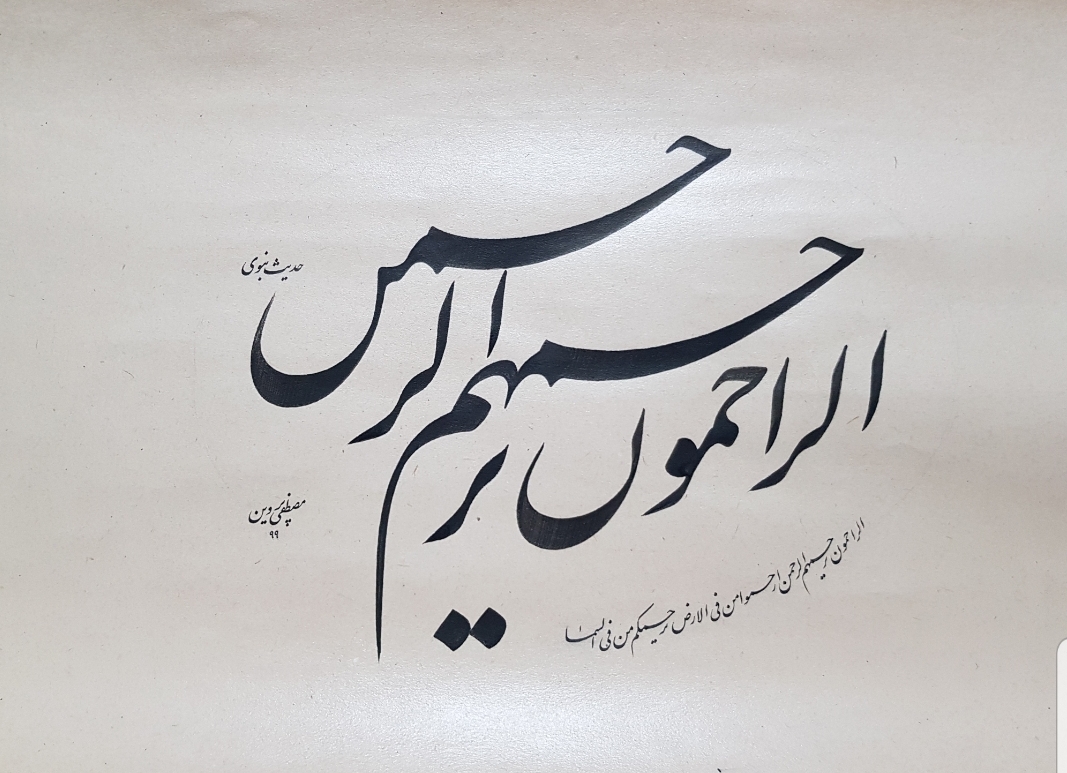 الراحمون يرحمهم الرحمن
حدیث نبوی
الراحمون يرحمهم الرحمن ارحموا من فی الارض يرحمكم من فی السما
مصطفی پروین
۹۹